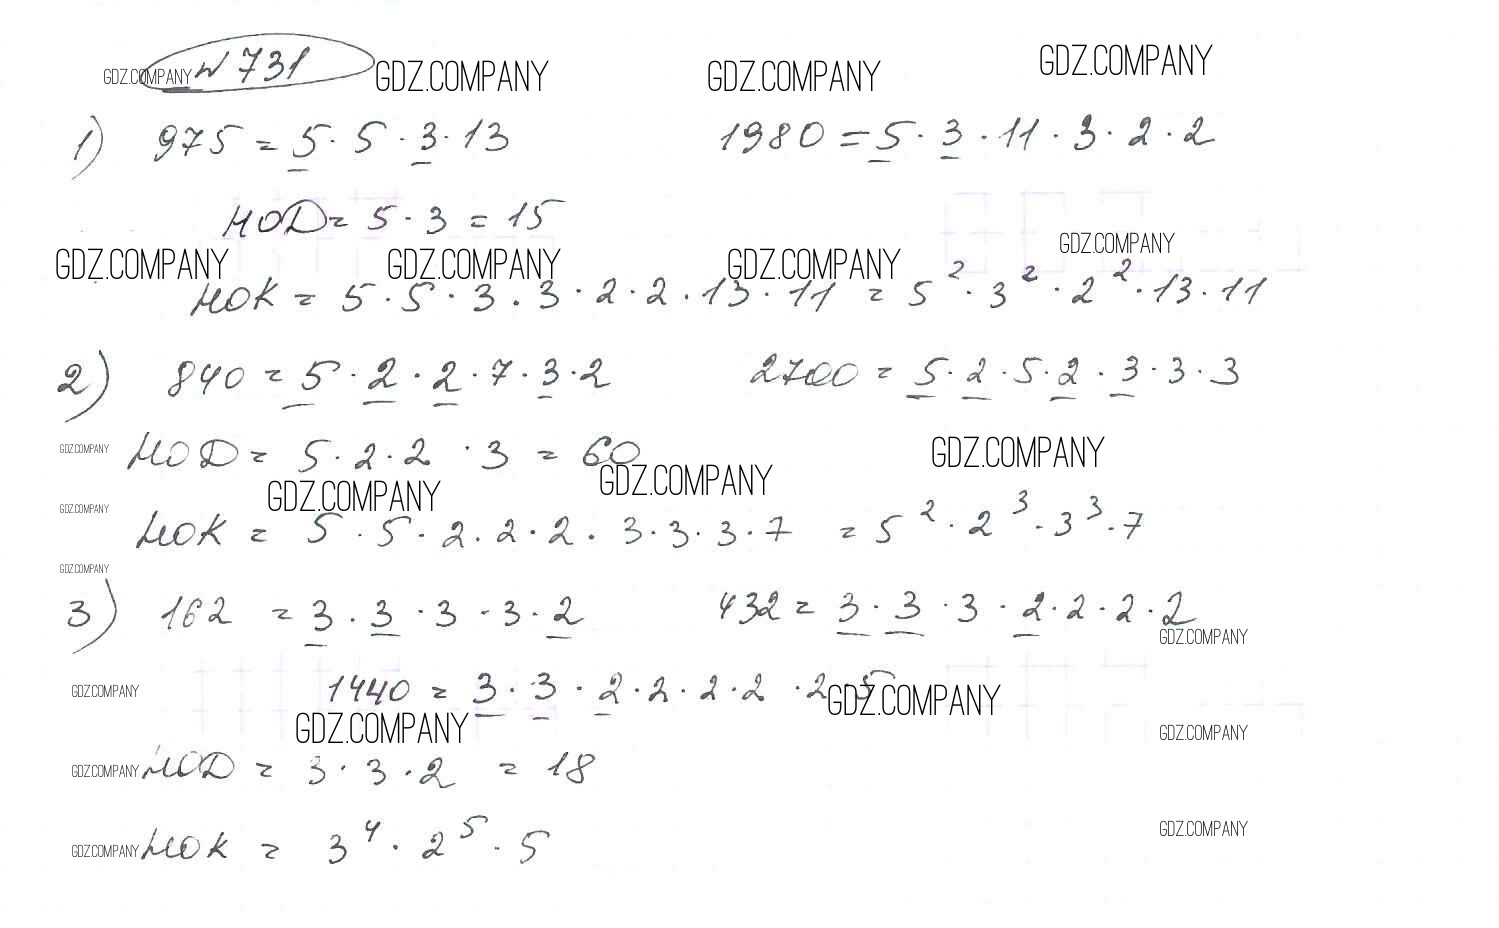 GDZ.COMPANY № 731 GDZ.COMPANY GDZ.COMPANY GDZ.COMPANY
1) 975 = 5 · 5 · 3 · 13 1980 = 5 · 3 · 11 · 3 · 2 · 2
НОД = 5 · 3 = 15
GDZ.COMPANY GDZ.COMPANY GDZ.COMPANY GDZ.COMPANY
НОК = 5 · 5 · 3 · 3 · 2 · 2 · 13 · 11 = 5² · 3² · 2² · 13 · 11
2) 840 = 5 · 2 · 2 · 7 · 3 · 2 2700 = 5 · 2 · 5 · 2 · 3 · 3 · 3
GDZ.COMPANY НОД = 5 · 2 · 2 · 3 = 60 GDZ.COMPANY
GDZ.COMPANY GDZ.COMPANY
GDZ.COMPANY НОК = 5 · 5 · 2 · 2 · 2 · 3 · 3 · 3 · 7 = 5² · 2³ · 3³ · 7
GDZ.COMPANY
3) 162 = 3 · 3 · 3 · 3 · 2 432 = 3 · 3 · 3 · 2 · 2 · 2 · 2
GDZ.COMPANY
GDZ.COMPANY 1440 = 3 · 3 · 2 · 2 · 2 · 2 · 2 · 5 GDZ.COMPANY
GDZ.COMPANY GDZ.COMPANY
GDZ.COMPANY НОД = 3 · 3 · 2 = 18
GDZ.COMPANY НОК = 3⁴ · 2⁵ · 5 GDZ.COMPANY